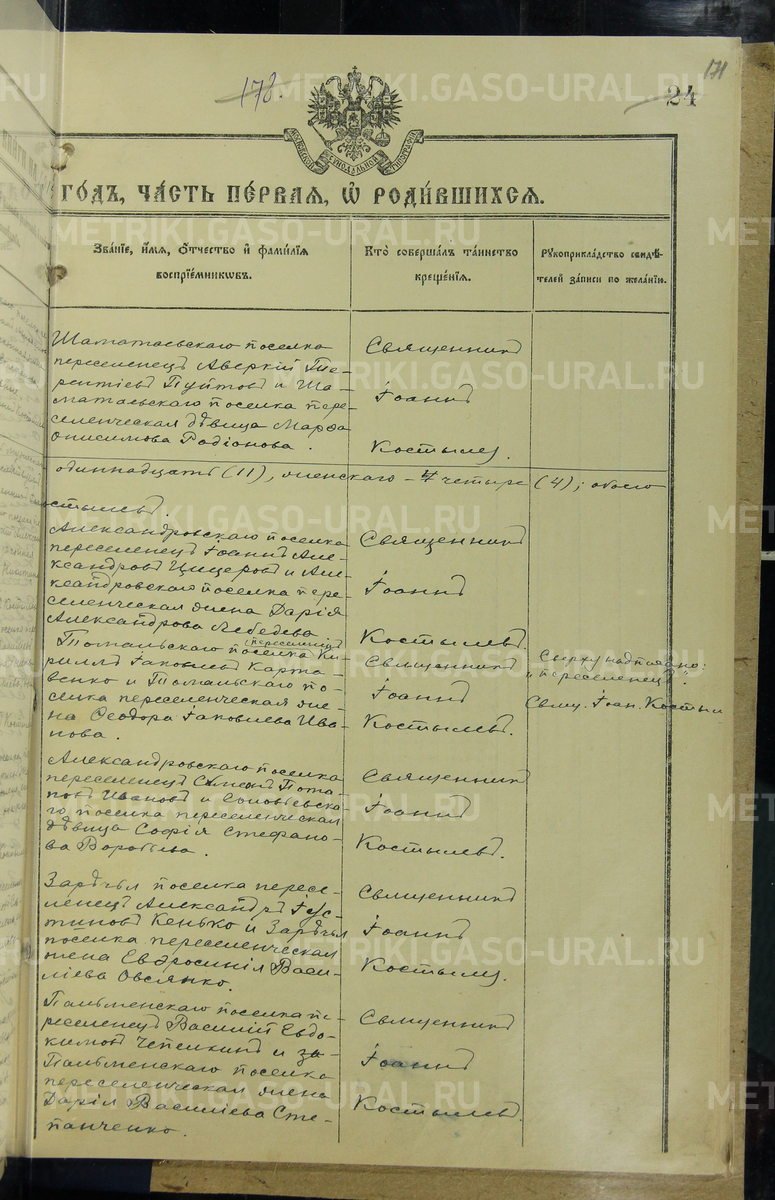 178.
171
24
МОСКОВСКОЙ СИНОДАЛЬНОЙ ТИПОГРАФІИ
METRIKI.GASO-URAL.RU
ГОДЪ, ЧАСТЬ ПЕРВАЯ, Ѡ РОДИВШИХСЯ.
Званіе, имя, отчество и фамилія
воспріемникѡвъ.
Кто совершалъ таинство
крещенія.
Рукоприкладство свидѣ-
телей записи по желанію.
Шаматаевскаго поселка
переселенецъ Аверкій Те-
рентіевъ Пуйтовъ и Ша-
матаевскаго поселка пере-
селенческая дѣвица Марѳа
Онисимова Родіонова.
Священникъ
Іоаннъ
Костылев.
одиннадцать (11), женскаго – 4 четыре (4); обоего
остылевъ.
Александровскаго поселка
переселенецъ Іоаннъ Але-
ксандровъ Цицеровъ и Але-
ксандровскаго поселка пере-
селенческая жена Дарія
Александрова Лебедева
Священникъ
Іоаннъ
Костылевъ.
переселенецъ
поселка Ки-
риллъ Іаковлевъ Карта-
венко и по-
селка переселенческая же-
на Ѳеодора Іаковлева Ива-
нова.
Священникъ
Іоаннъ
Костылевъ.
Сверху надписано:
"переселенецъ".
Свящ. Іоан. Костыл
Александровскаго поселка
переселенецъ Сѵмеонъ Пота-
повъ Ивановъ и Соловьевска-
го поселка переселенческая
дѣвица Софія Стефано-
ва Воробьева.
Священникъ
Іоаннъ
Костылевъ.
Зарѣчья поселка пересе-
ленецъ Александръ Іус-
тиновъ Кенько и Зарѣчья
поселка переселенческая
жена Евфросинія Васи-
ліева Овсянко.
Священникъ
Іоаннъ
Костылев.
поселка пе-
реселенецъ Василій Евдо-
кимовъ Чепелкинъ и
поселка
переселенческая жена
Дарія Василіева Сте-
панченко.
Священникъ
Іоаннъ
Костылевъ.